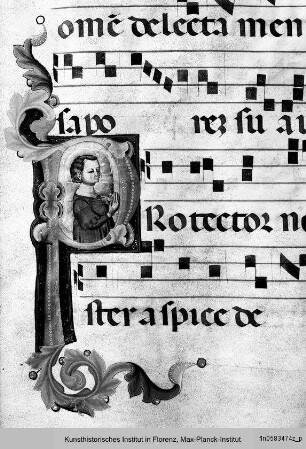 omē delecta men
sapo rez su au
Rotector no
ster aspice de
Kunsthistorisches Institut in Florenz, Max-Planck-Institut